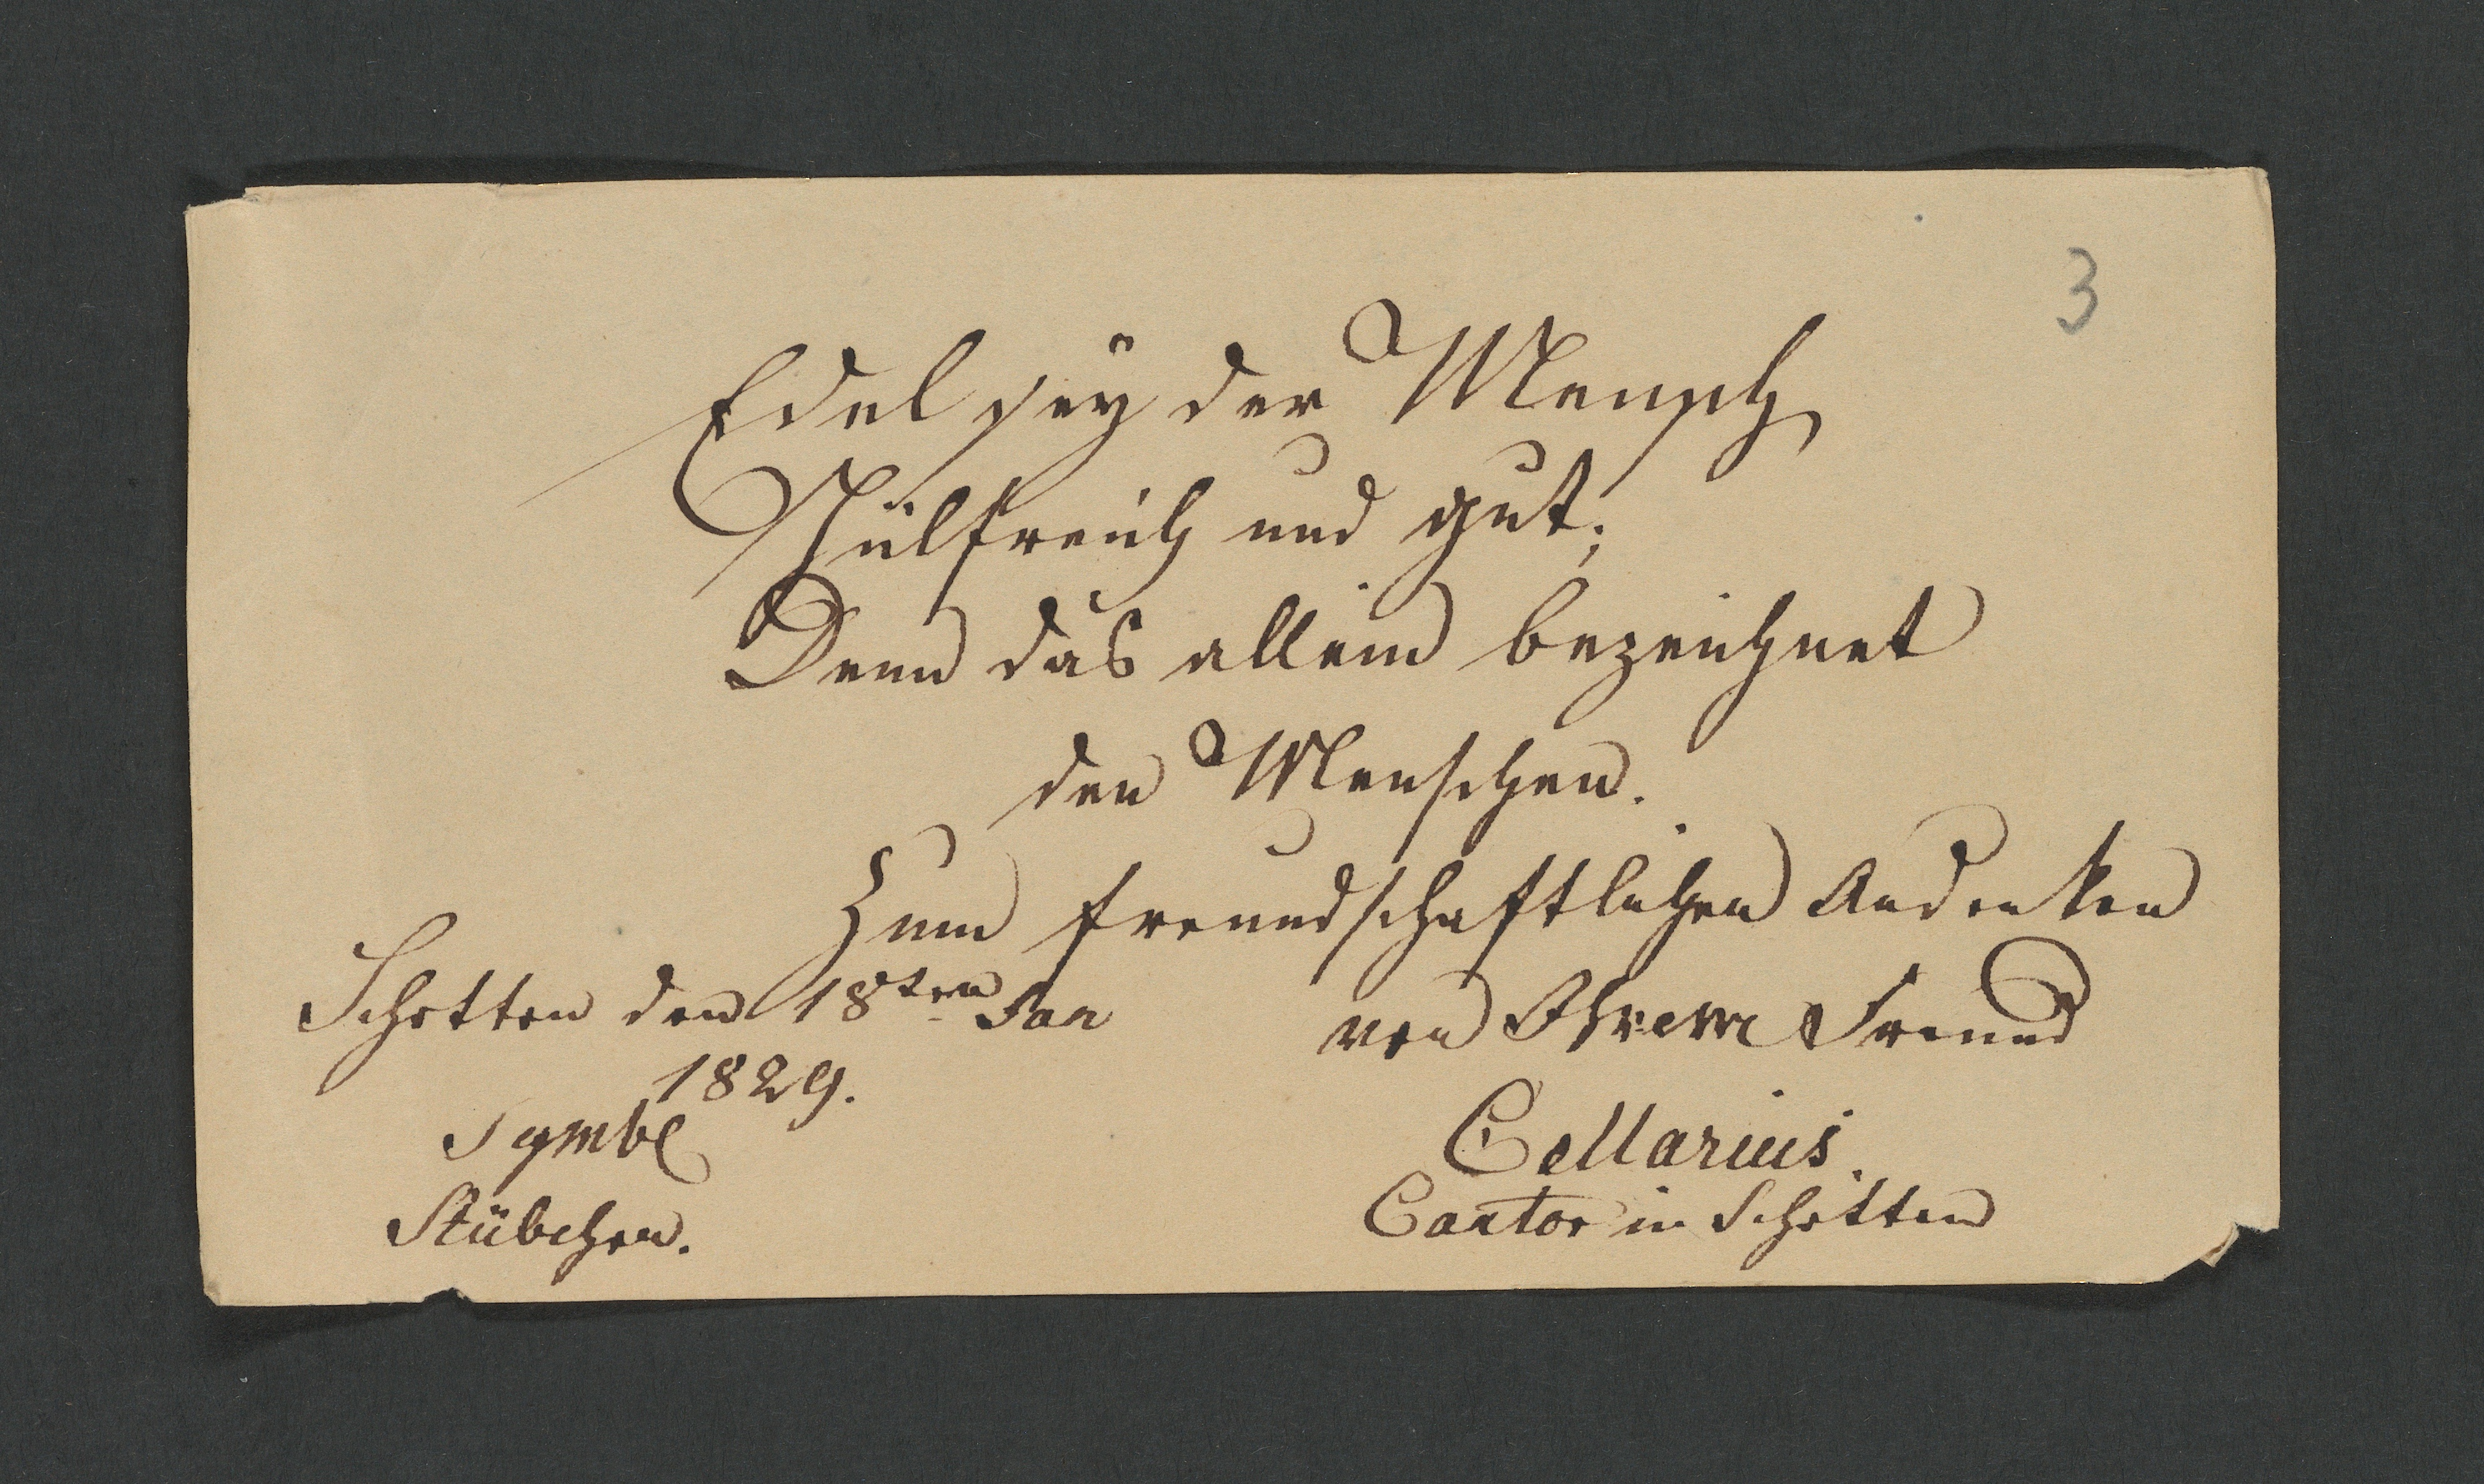 3
Edel sey der Mensch
Hülfreich und gut;
Denn das allein bezeichnet
den Menschen.
Zum freundschaftlichen Andenken
Schotten den 18ten Jan
1829.
von Ihrem Freund
Cellarius.
Cantor in Schotten
Symbl
Stübchen.